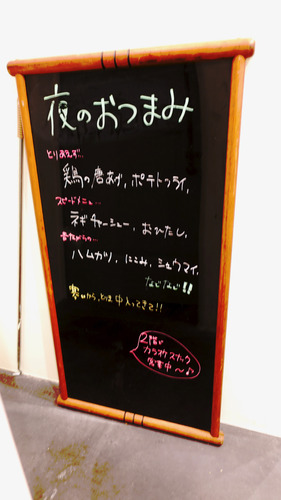 夜のおつまみ
とりあえず...
鶏の唐あげ, ポテトフライ,
スピードメニュー...
ネギチャーシュー, おひたし,
昔ながらの...
ハムカツ, にこみ, シュウマイ,
などなど!!
寒いから、とりま中入ってきて!!
2階で
カラオケスナック
営業中〜♪